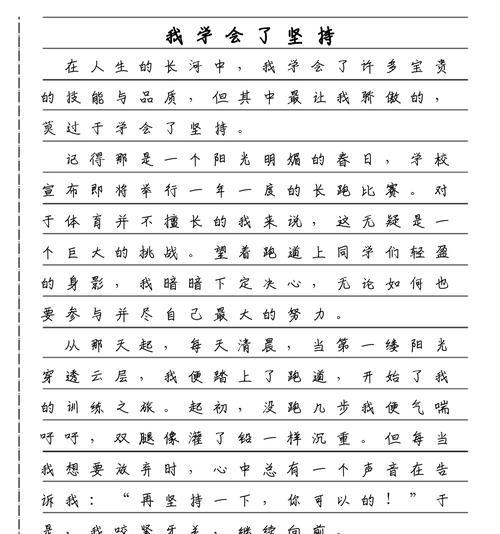 我学会了坚持
在人生的长河中，我学会了许多宝贵
的技能与品质，但其中最让我骄傲的，
莫过于学会了坚持。
记得那是一个阳光明媚的春日，学校
宣布即将举行一年一度的长跑比赛。对
于体育并不擅长的我来说，这无疑是一
个巨大的挑战。望着跑道上同学们轻盈
的身影，我暗暗下定决心，无论如何也
要参与并尽自己最大的努力。
从那天起，每天清晨，当第一缕阳光
穿透云层，我便踏上了跑道，开始了我
的训练之旅。起初，没跑几步我便气喘
吁吁，双腿像灌了铅一样沉重。但每当
我想要放弃时，心中总有一个声音在告
诉我：“再坚持一下，你可以的！”于
是，我咬紧牙关，继续向前。